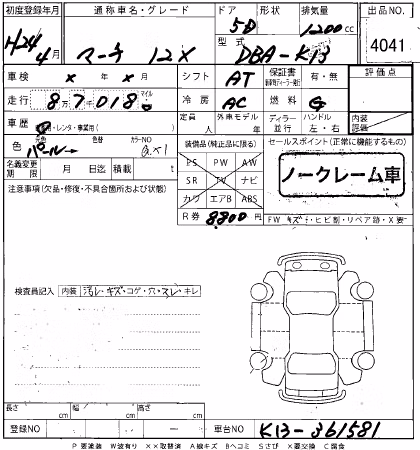 初度登録年月 通称車名・グレード ドア 形状 排気量 出品NO.
H24年 4月 マーチ 12X 5D 1200cc 4041
型式 DBA-K13
車検 × 年 × 月 シフト AT 保証書 有・無 評価点
走行 8万7千018 マイル 冷房 AC 燃料 G
車歴 自家用・レンタ・事業用( ) 定員 人 外車モデル 年 ディーラー 並行 ハンドル 左・右 内装評価
色 パール 色替 カラーNO QX1
装備品(純正品に限る) セールスポイント(正常に機能するもの)
名義変更期限 月 日迄 積載 t
PS PW AW
SR TV ナビ
カワ エアB ABS
ノークレーム車
R券 8800円
FW キズ・ヒビ割・リペア跡・X要
注意事項(欠品・修復・不具合箇所および状態)
検査員記入 内装 汚レ・キズ・コゲ・穴・スレ・キレ
長さ cm 幅 cm 高さ cm
登録NO 車台NO K13-361581
P要塗装 W波有り ××取替済 A線キズ Bヘコミ Sさび X要交換 C腐食